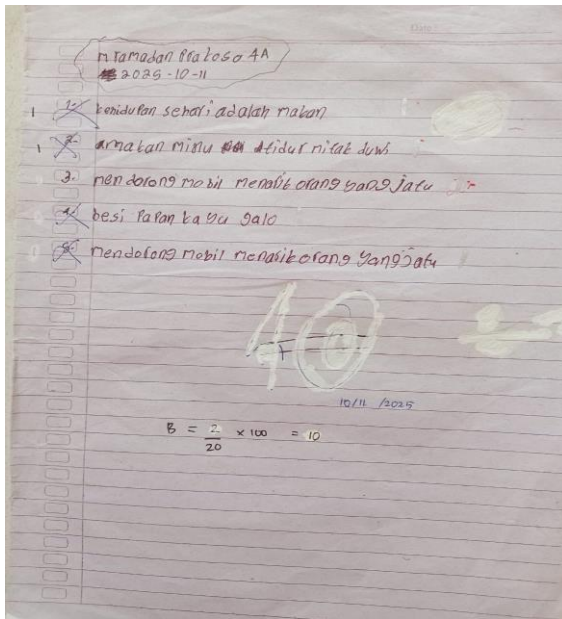 M ramadan Prakoso 4A
2025-10-11
1 1. kehidupan sehari adalah makan
1 2. amakan minu tidur nitak duwi
3. mendorong mobil menarik orang yang jatu
4. besi papan kayu galo
5. mendorong mobil menarik orang yang jatu
40
10/11 /2025
B = 2/20 × 100 = 10